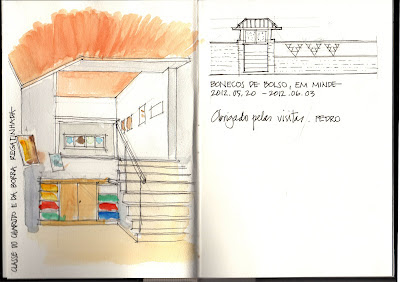 CLASSE DO CHARUTO E DA BORRA REGATINHADA
BONECOS DE BOLSO, EM MINDE
2012.05.20 - 2012.06.03
Obrigado pelas visitas. PEDRO